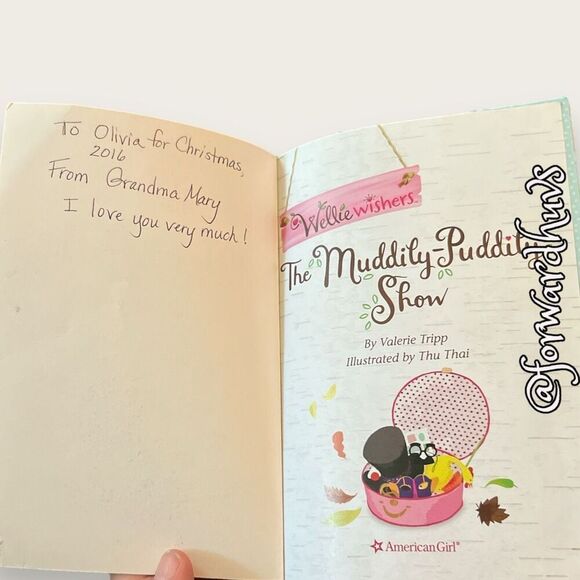 To Olivia for Christmas,
2016
From Grandma Mary
I love you very much!
WellieWishers™
The Muddily-Puddily
Show
By Valerie Tripp
Illustrated by Thu Thai
American Girl®
@forwardhuvs